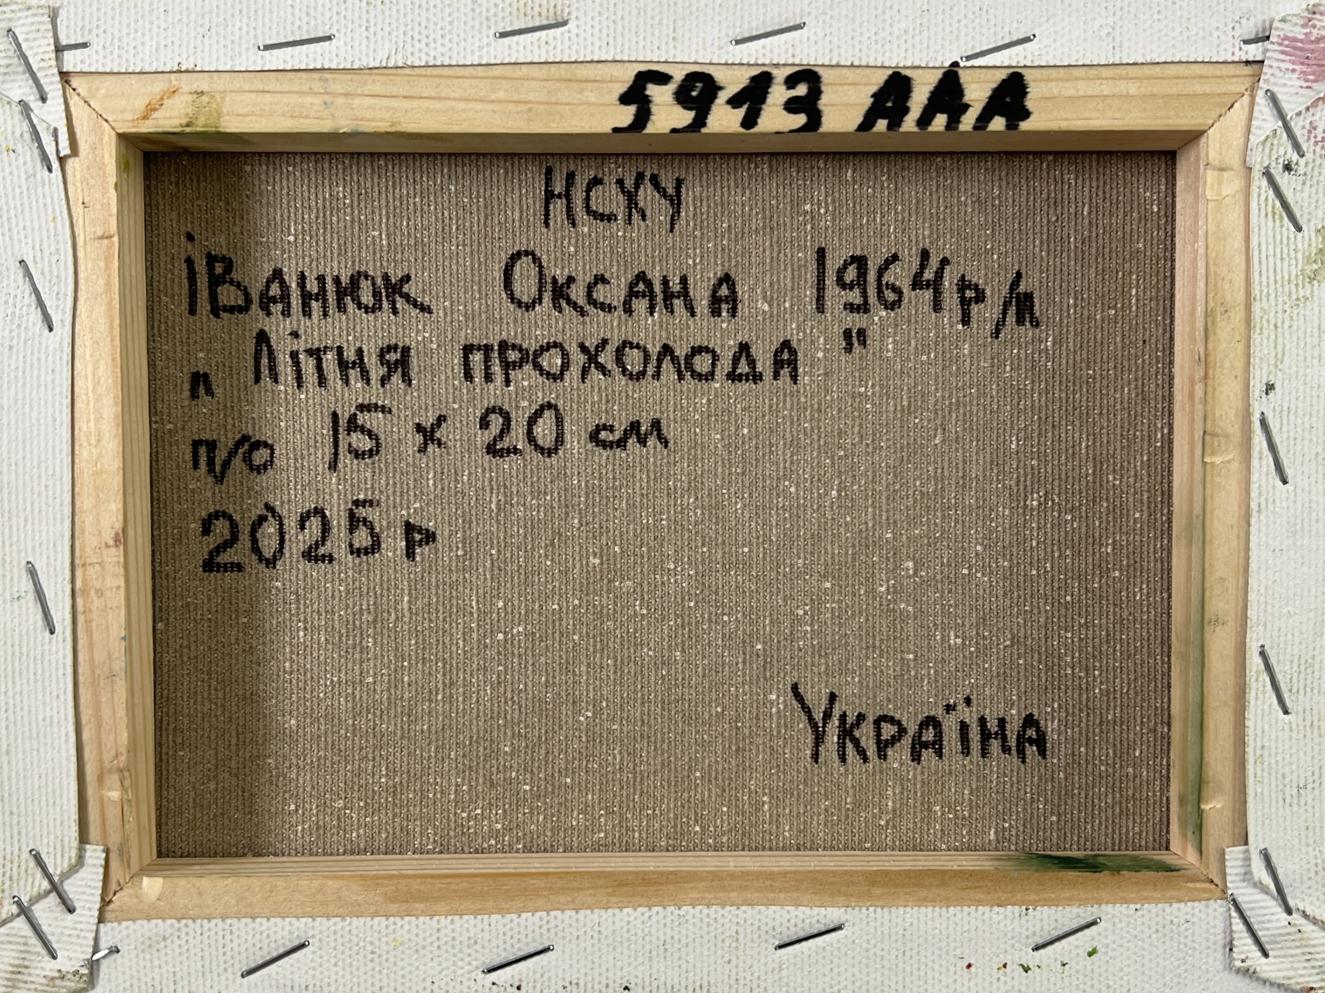 5913 AAA
НСХУ
Іванюк Оксана 1964р/н
„ Літня прохолода "
п/о 15 x 20 см
2025 р
Україна